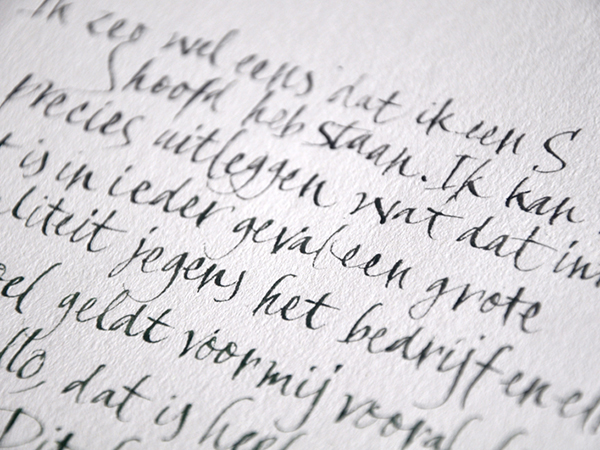 Ik zeg wel eens dat ik een S
hoofd heb staan. Ik kan
precies uitleggen wat dat in
t is in ieder geval een grote
liteit jegens het bedrijf en el
oel geldt voor mij vooral
llo, dat is heel
Dit